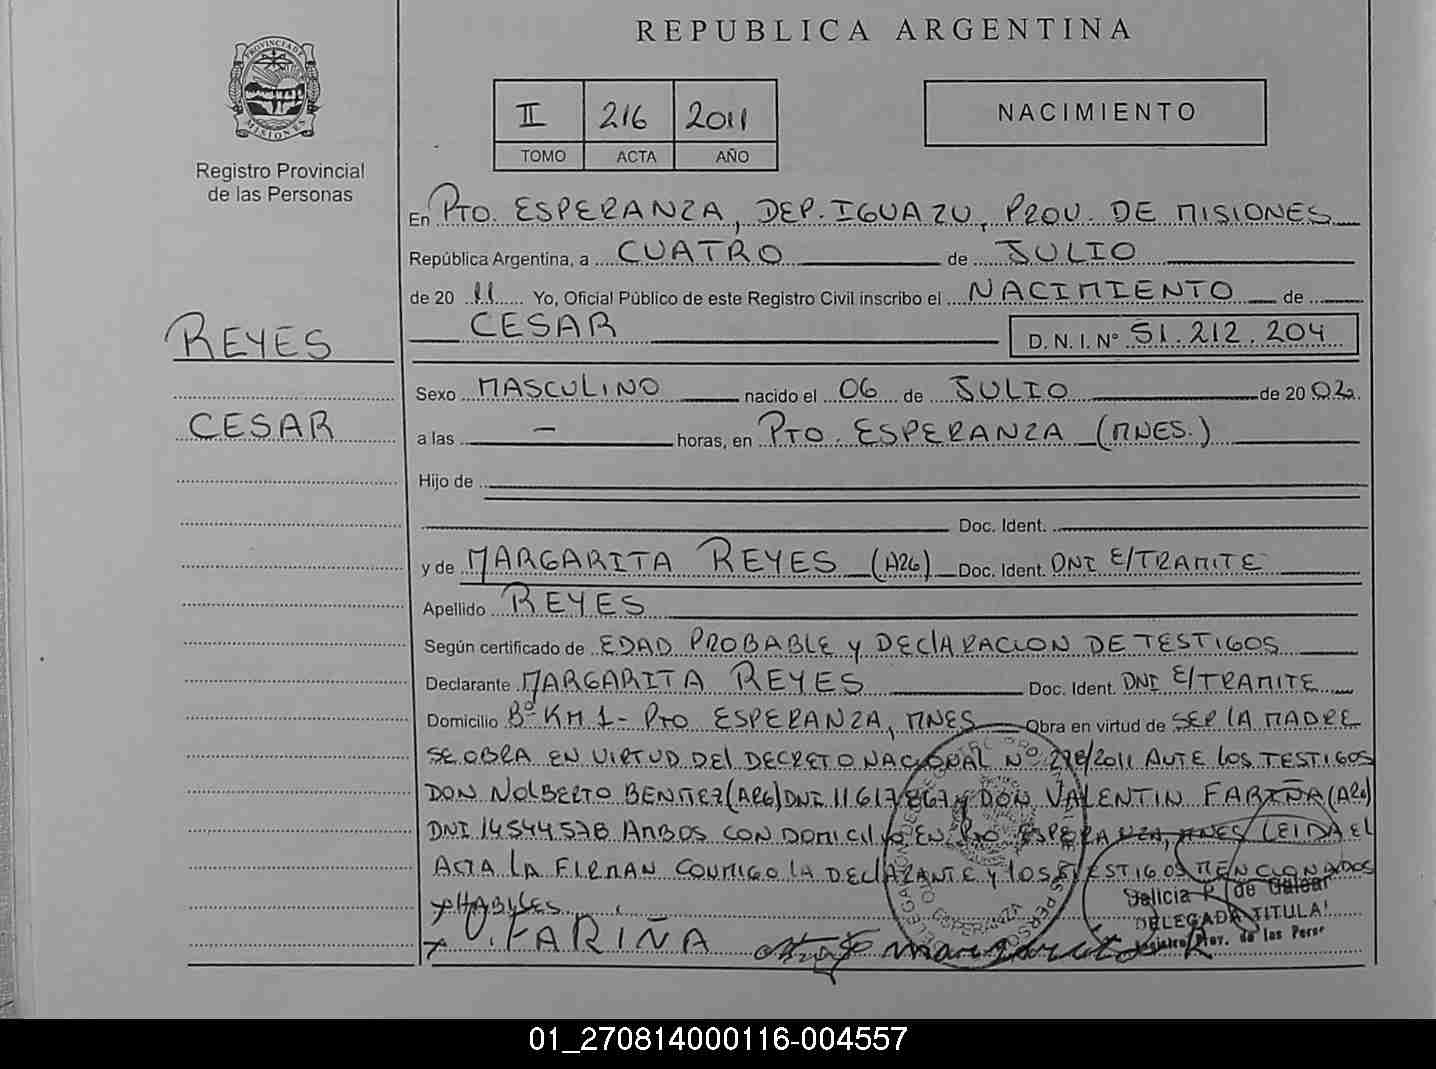 REPUBLICA ARGENTINA
PROVINCIA DE MISIONES
Registro Provincial
de las Personas
II 216 2011
TOMO ACTA AÑO
NACIMIENTO
En PTO. ESPERANZA, DEP. IGUAZU, PROV. DE MISIONES
República Argentina, a CUATRO de JULIO
de 20 11 Yo, Oficial Público de este Registro Civil inscribo el NACIMIENTO de
CESAR D. N. I. Nº 51.212.204
REYES
CESAR
Sexo MASCULINO nacido el 06 de JULIO de 20 02
a las - horas, en PTO. ESPERANZA (MNES.)
Hijo de
Doc. Ident.
y de MARGARITA REYES (ARG) Doc. Ident. DNI E/TRAMITE
Apellido REYES
Según certificado de EDAD PROBABLE y DECLARACION DE TESTIGOS
Declarante MARGARITA REYES Doc. Ident. DNI E/TRAMITE
Domicilio Bº KM 1 - PTO ESPERANZA, MNES Obra en virtud de SER LA MADRE
SE OBRA EN VIRTUD DEL DECRETO NACIONAL Nº 278/2011 ANTE LOS TESTIGOS
DON NOLBERTO BENITEZ (ARG) DNI 11617867 y DON VALENTIN FARIÑA (ARG)
DNI 14544578 AMBOS CON DOMICILIO EN PTO ESPERANZA, MNES LEIDA EL
ACTA LA FIRMAN CONMIGO LA DECLARANTE y LOS TESTIGOS MENCIONADOS
HABILES
V. FARIÑA margarita R
DELEGADA TITULA
Registro Prov. de las Pers
PTO ESPERANZA
01_270814000116-004557